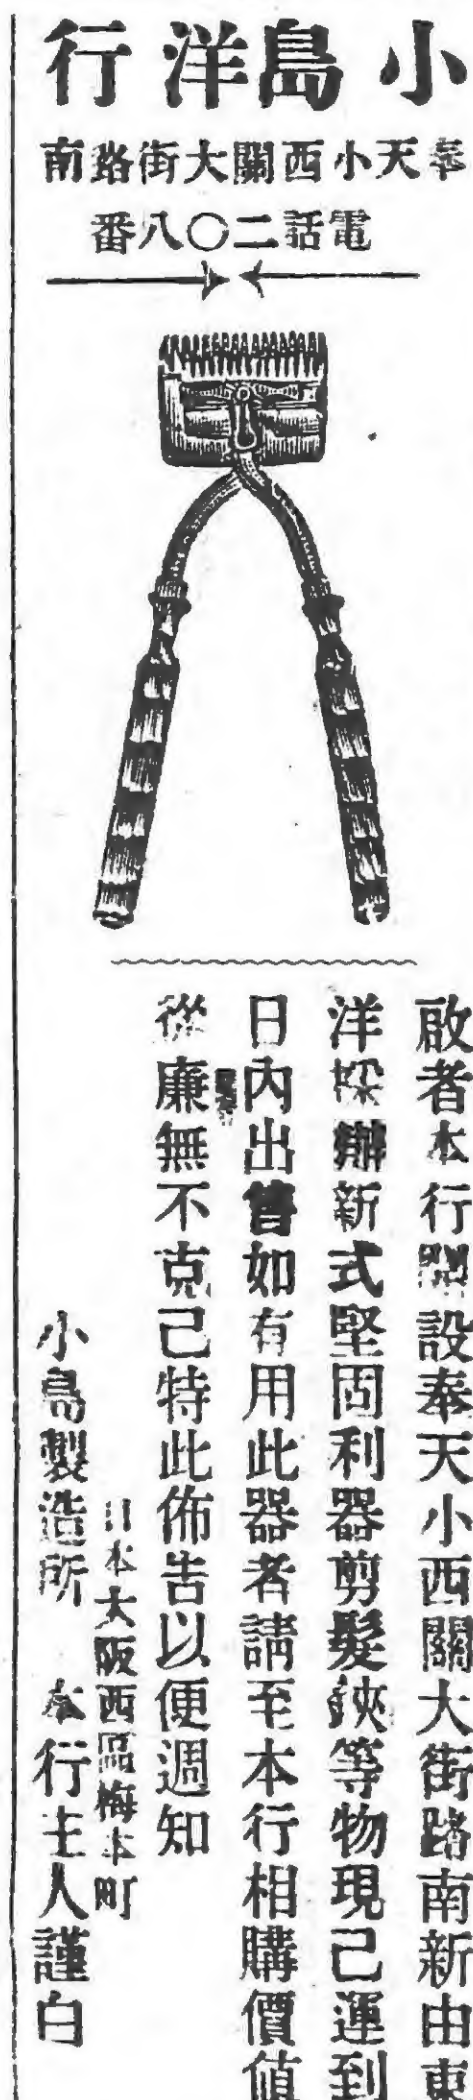 小島洋行
奉天小西關大街路南
電話二〇八番
啟者本行開設奉天小西關大街路南新由東
洋採辦新式堅固利器剪髮鋏等物現己運到
日內出售如有用此器者請至本行相購價值
從廉無不克己特此佈告以便週知
日本大阪西區梅本町
小島製造所 本行主人謹白